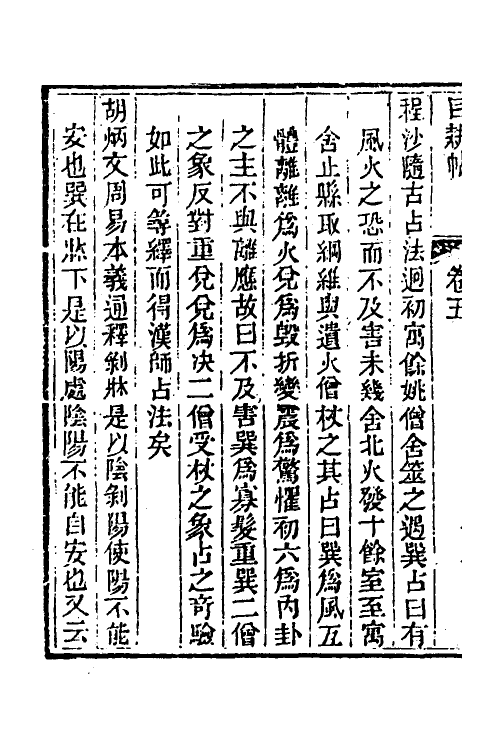 目耕帖
卷五
程沙隨古占法迥初寓餘姚僧舍筮之遇巽占曰有
風火之恐而不及害未幾舍北火發十餘室至寓
舍止縣取綱維與遺火僧杖之其占曰巽爲風互
體離離爲火兌爲毀折變震爲驚懼初六爲內卦
之主不與離應故曰不及害巽爲寡髮重巽二僧
之象反對重兌兌爲决二僧受杖之象占之奇驗
如此可等繹而得漢師占法矣
胡炳文周易本義通釋剝牀是以陰剝陽使陽不能
安也巽在牀下是以陽處陰陽不能自安也又云